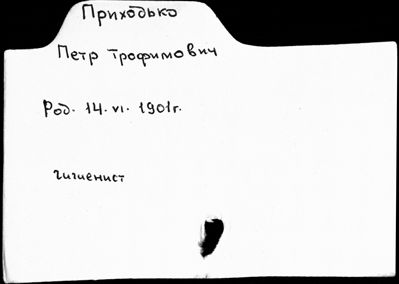 Приходько
Петр Трофимович
Род. 14. VI. 1901г.
гигиенист